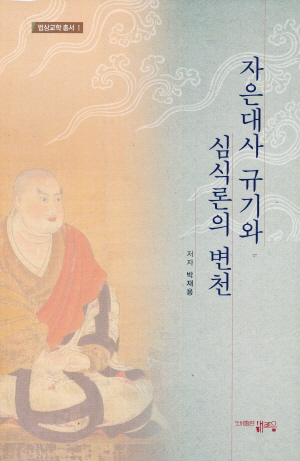 법상교학 총서 1
자은대사 규기와
심식론의 변천
저자 박재용
도서출판